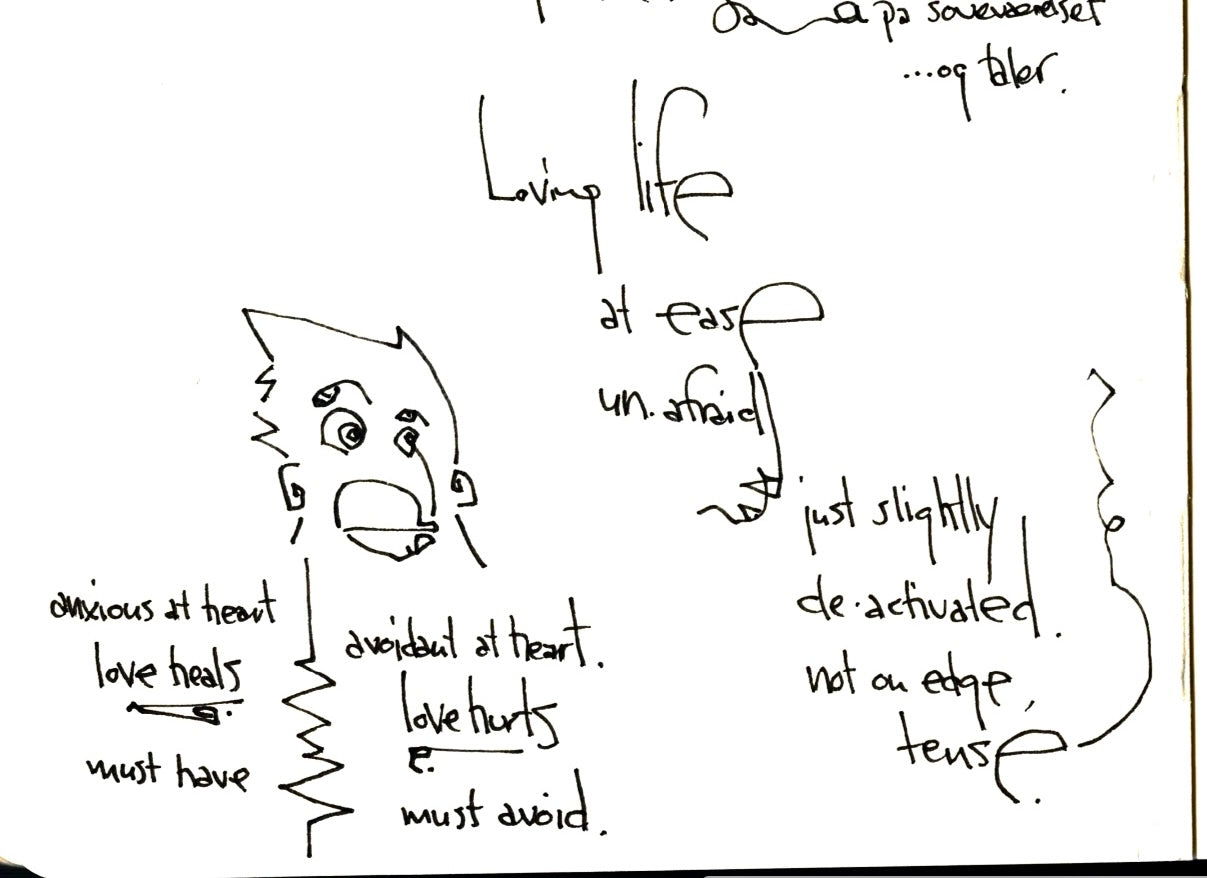 på soveværelset
...og taler.
Loving life
at ease
un.afraid
just slightly
de.activated.
not on edge,
tense.
anxious at heart
love heals
must have
avoidant at heart.
love hurts
must avoid.